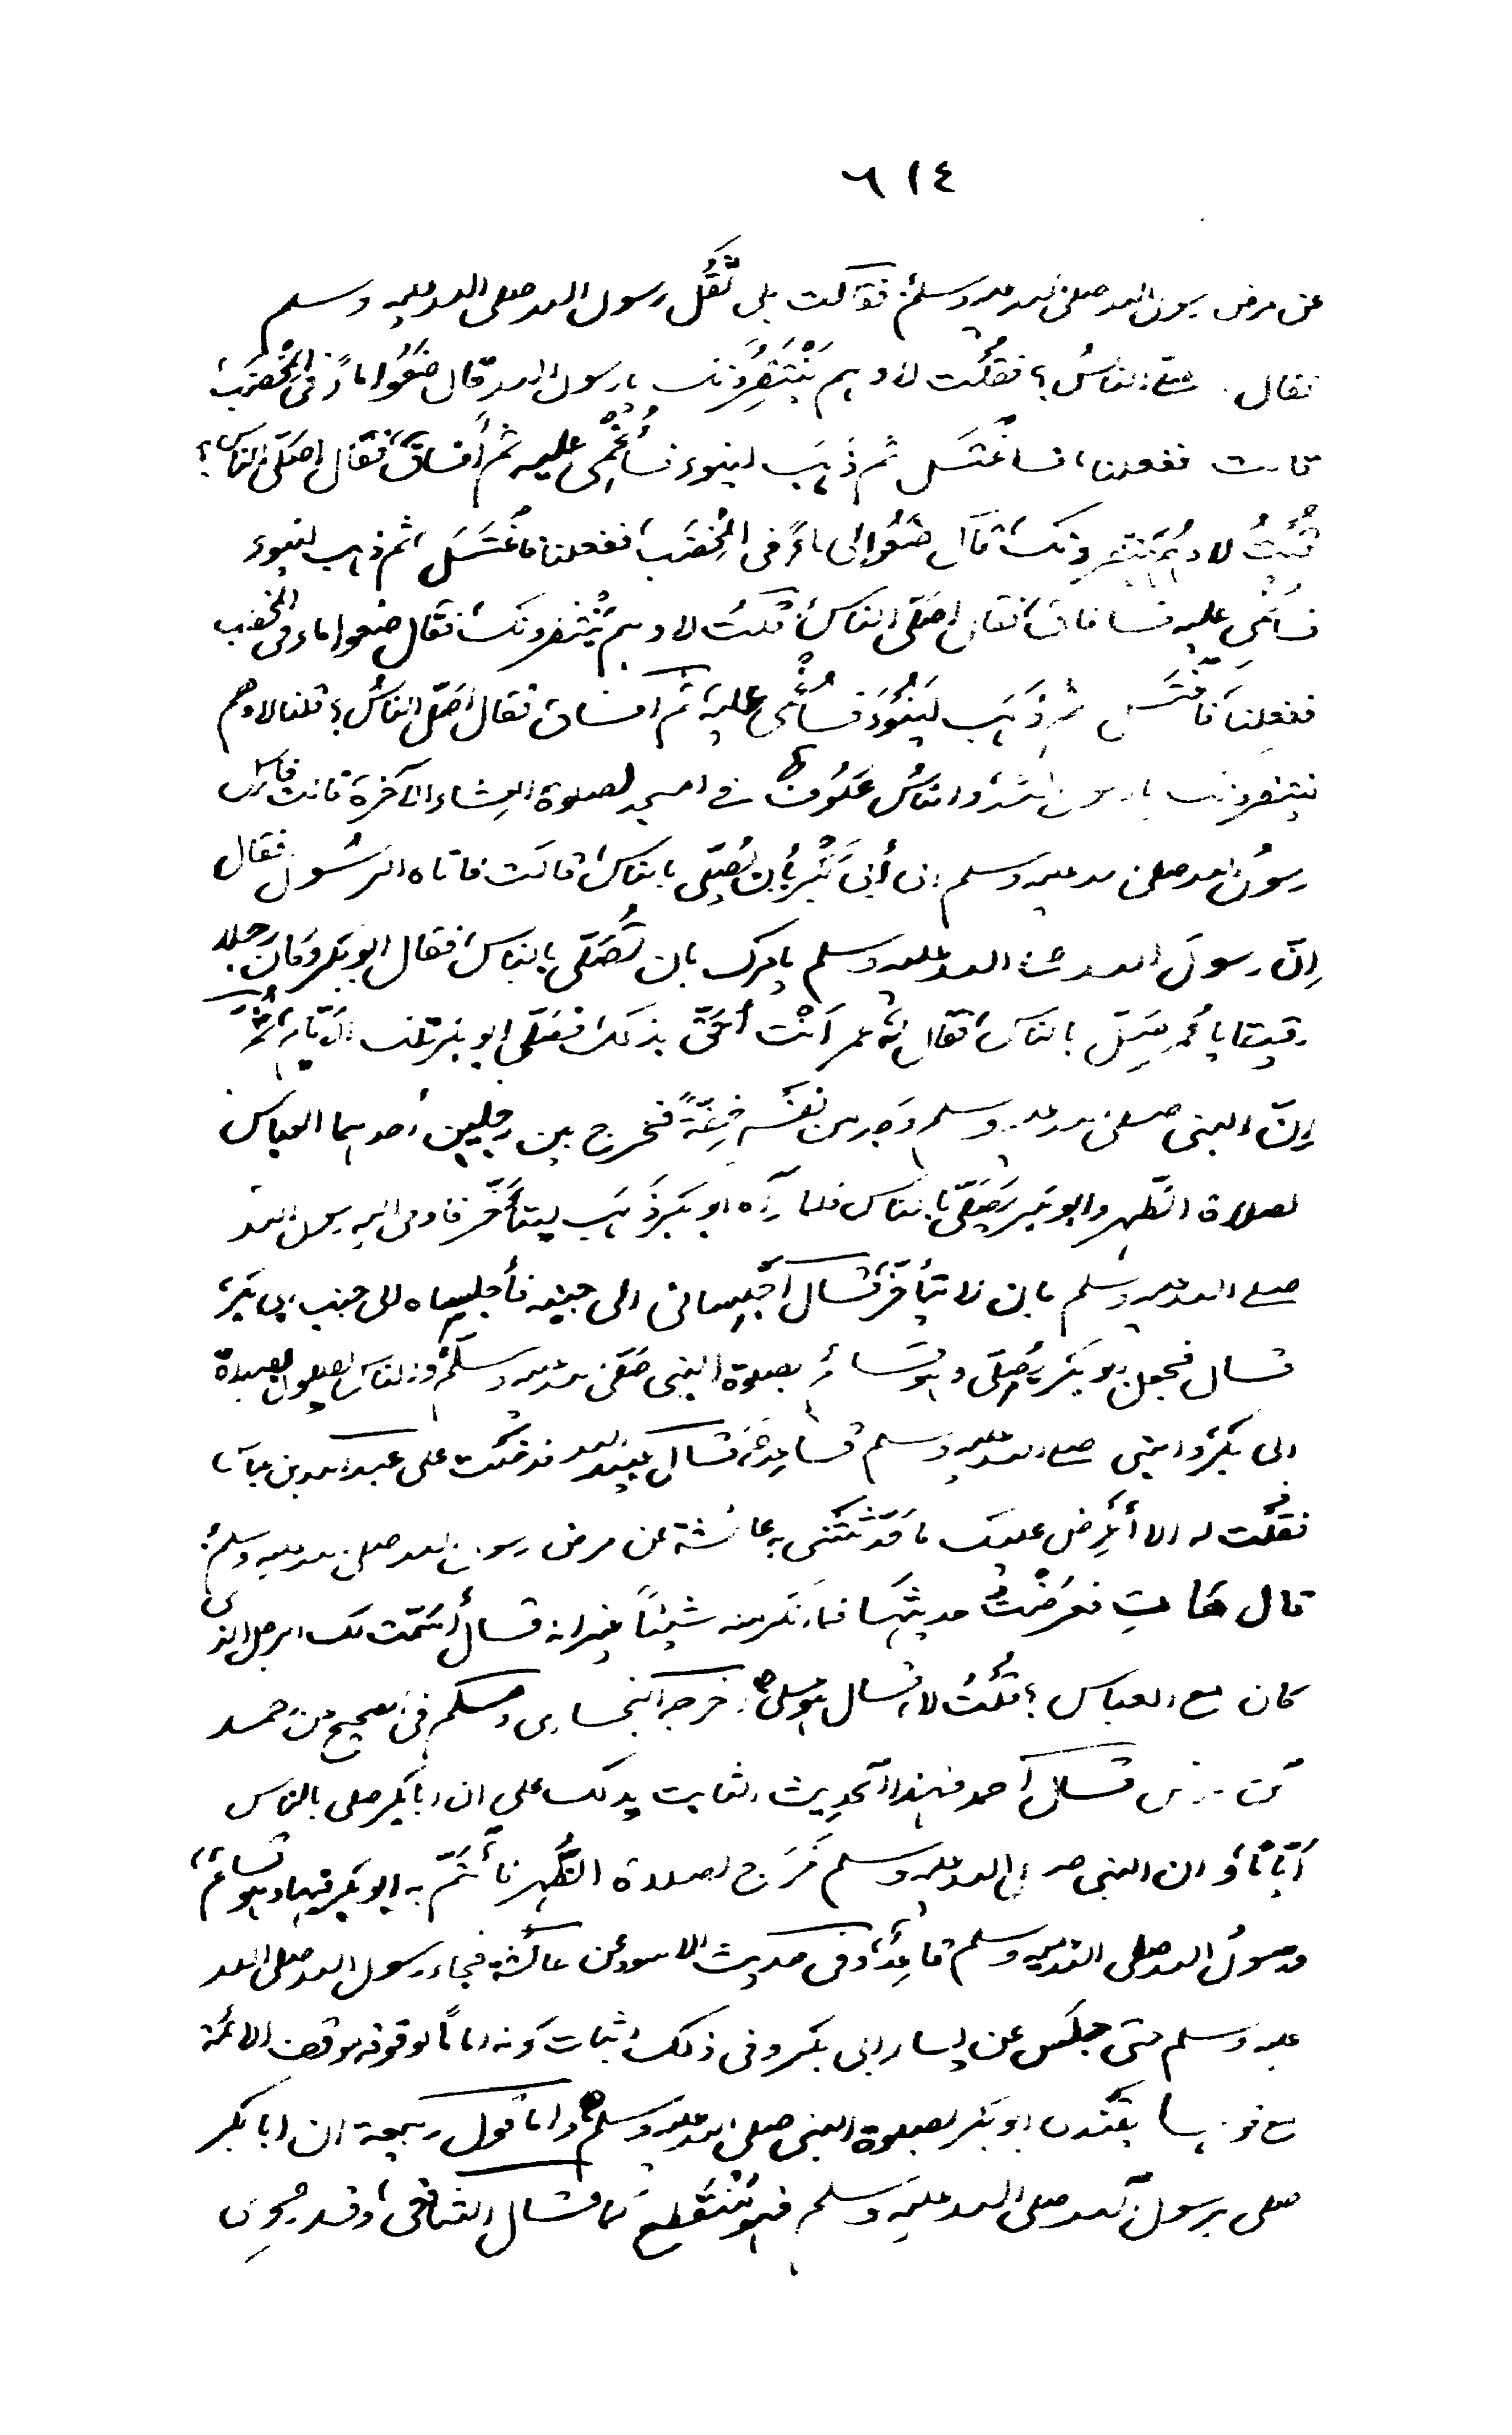 ٦١٤
عن مرض رسول الله صلى الله عليه وسلم؟ فقالت بلى ثَقُل رسول الله صلى الله عليه وسلم
فقال. صلى الناسُ؟ فقلت لا وهم يَنْتَظِرُونك يا رسول الله قال ضَعُوا لى ماءً فى المِخْضَبِ
قالت ففعلنا، فاغْتَسَل ثم ذَهَبَ لينوء فأُغْمِى عليه ثم أفاقَ، فقال اصَلَّى الناس؟
قُلتُ لا وهم ينتظرونك، قال ضَعُوا لى ماءً فى المِخْضَب، ففعلنا فاغْتَسَل، ثم ذهب لينوء
فأغمى عليه فافاق، فقال اصَلَّى الناسُ، قلتُ لا وهم ينتظرونك، فقال ضعوا ماء فى المخضب
ففعلنا فاغتسل ثم ذَهَبَ لِيَنُوءَ فأُغْمِى عليه، ثم افاق، فقال أصلّى الناسُ؟ قلنا لا وهم
ينتظرونك يا رسول الله، والناسُ عكوف فى المسجد لصلوة العشاء الآخرة قالت فارسل
رسولُ الله صلى الله عليه وسلم إلى أبى بَكْرٍ بأن يُصَلِّى بالناس، قالت فاتاه الرسُول فقال
إنّ رسولَ الله صلى الله عليه وسلم يامرك بان تُصَلِّى بالناس، فقال ابو بكر وكان رجلا
رقيقا يا عُمر صَلِّ بالناس، فقال له عمر أنت أحَقُّ بذلك، فصَلّى ابو بكر تلك الأيّام، ثُمَّ
إنّ النبى صلى الله عليه وسلم وَجد من نفسِه خِفّةً فخرج بين رجلين، أحدهما العباس
لصلاة الظهر وابو بكر يُصَلِّى بالناس فلما رآه ابو بكر ذَهَب ليتأَخّر فاومى اليه رسول الله
صلى الله عليه وسلم بان لا يتأخّر، قال أجْلِسانى الى جنبه فأجلساه الى جنب ابى بكر،
قال فجعل ابو بكر يُصَلِّى وهو قائم بصلوة النبى صَلّى الله عليه وسلّم، والناس يصلون بصلاة
ابى بكر، والنبى صلى الله عليه وسلم قاعِدٌ، قال عبيد الله فدخلت على عبد الله بن عباس
فقُلت له الا أَعْرِض عليك ما حَدّثَتْنى به عائشة عن مرض رسول الله صلى الله عليه وسلم؟
قال هاتِ فعرَضْتُ حديثها فما انكر منه شيئاً غير انه قال أسَمَّت لك الرجل الذى
كان مع العباس؟ قلتُ لا، قال هو على، خرجه البخارى ومسلم فى الصحيح من احمد
بن يونس قال احمد فهذا الحديث الثابت يدلك على ان ابا بكر صلى بالناس
أيّاماً، وان النبى صلى الله عليه وسلم خَرَج لصلاة الظُّهر فأْتَمّ به ابو بكر فيها وهو قائم،
ورسولُ الله صلى الله عليه وسلم قاعِدٌ، وفى حديث الاسود عن عائشة فجاء رسول الله صلى الله
عليه وسلم حتى جلس عن يسار ابى بكر وفى ذلك اثبات كونه اماماً لوقوفه موقف الائمة
مع قولها يقتدى ابو بكر بصلوة النبى صلى الله عليه وسلم، واما قول ربيعة ان ابا بكر
صلى برسول الله صلى الله عليه وسلم فهو مُنْقَطِع كما قال الشافعى، وقد يجوز